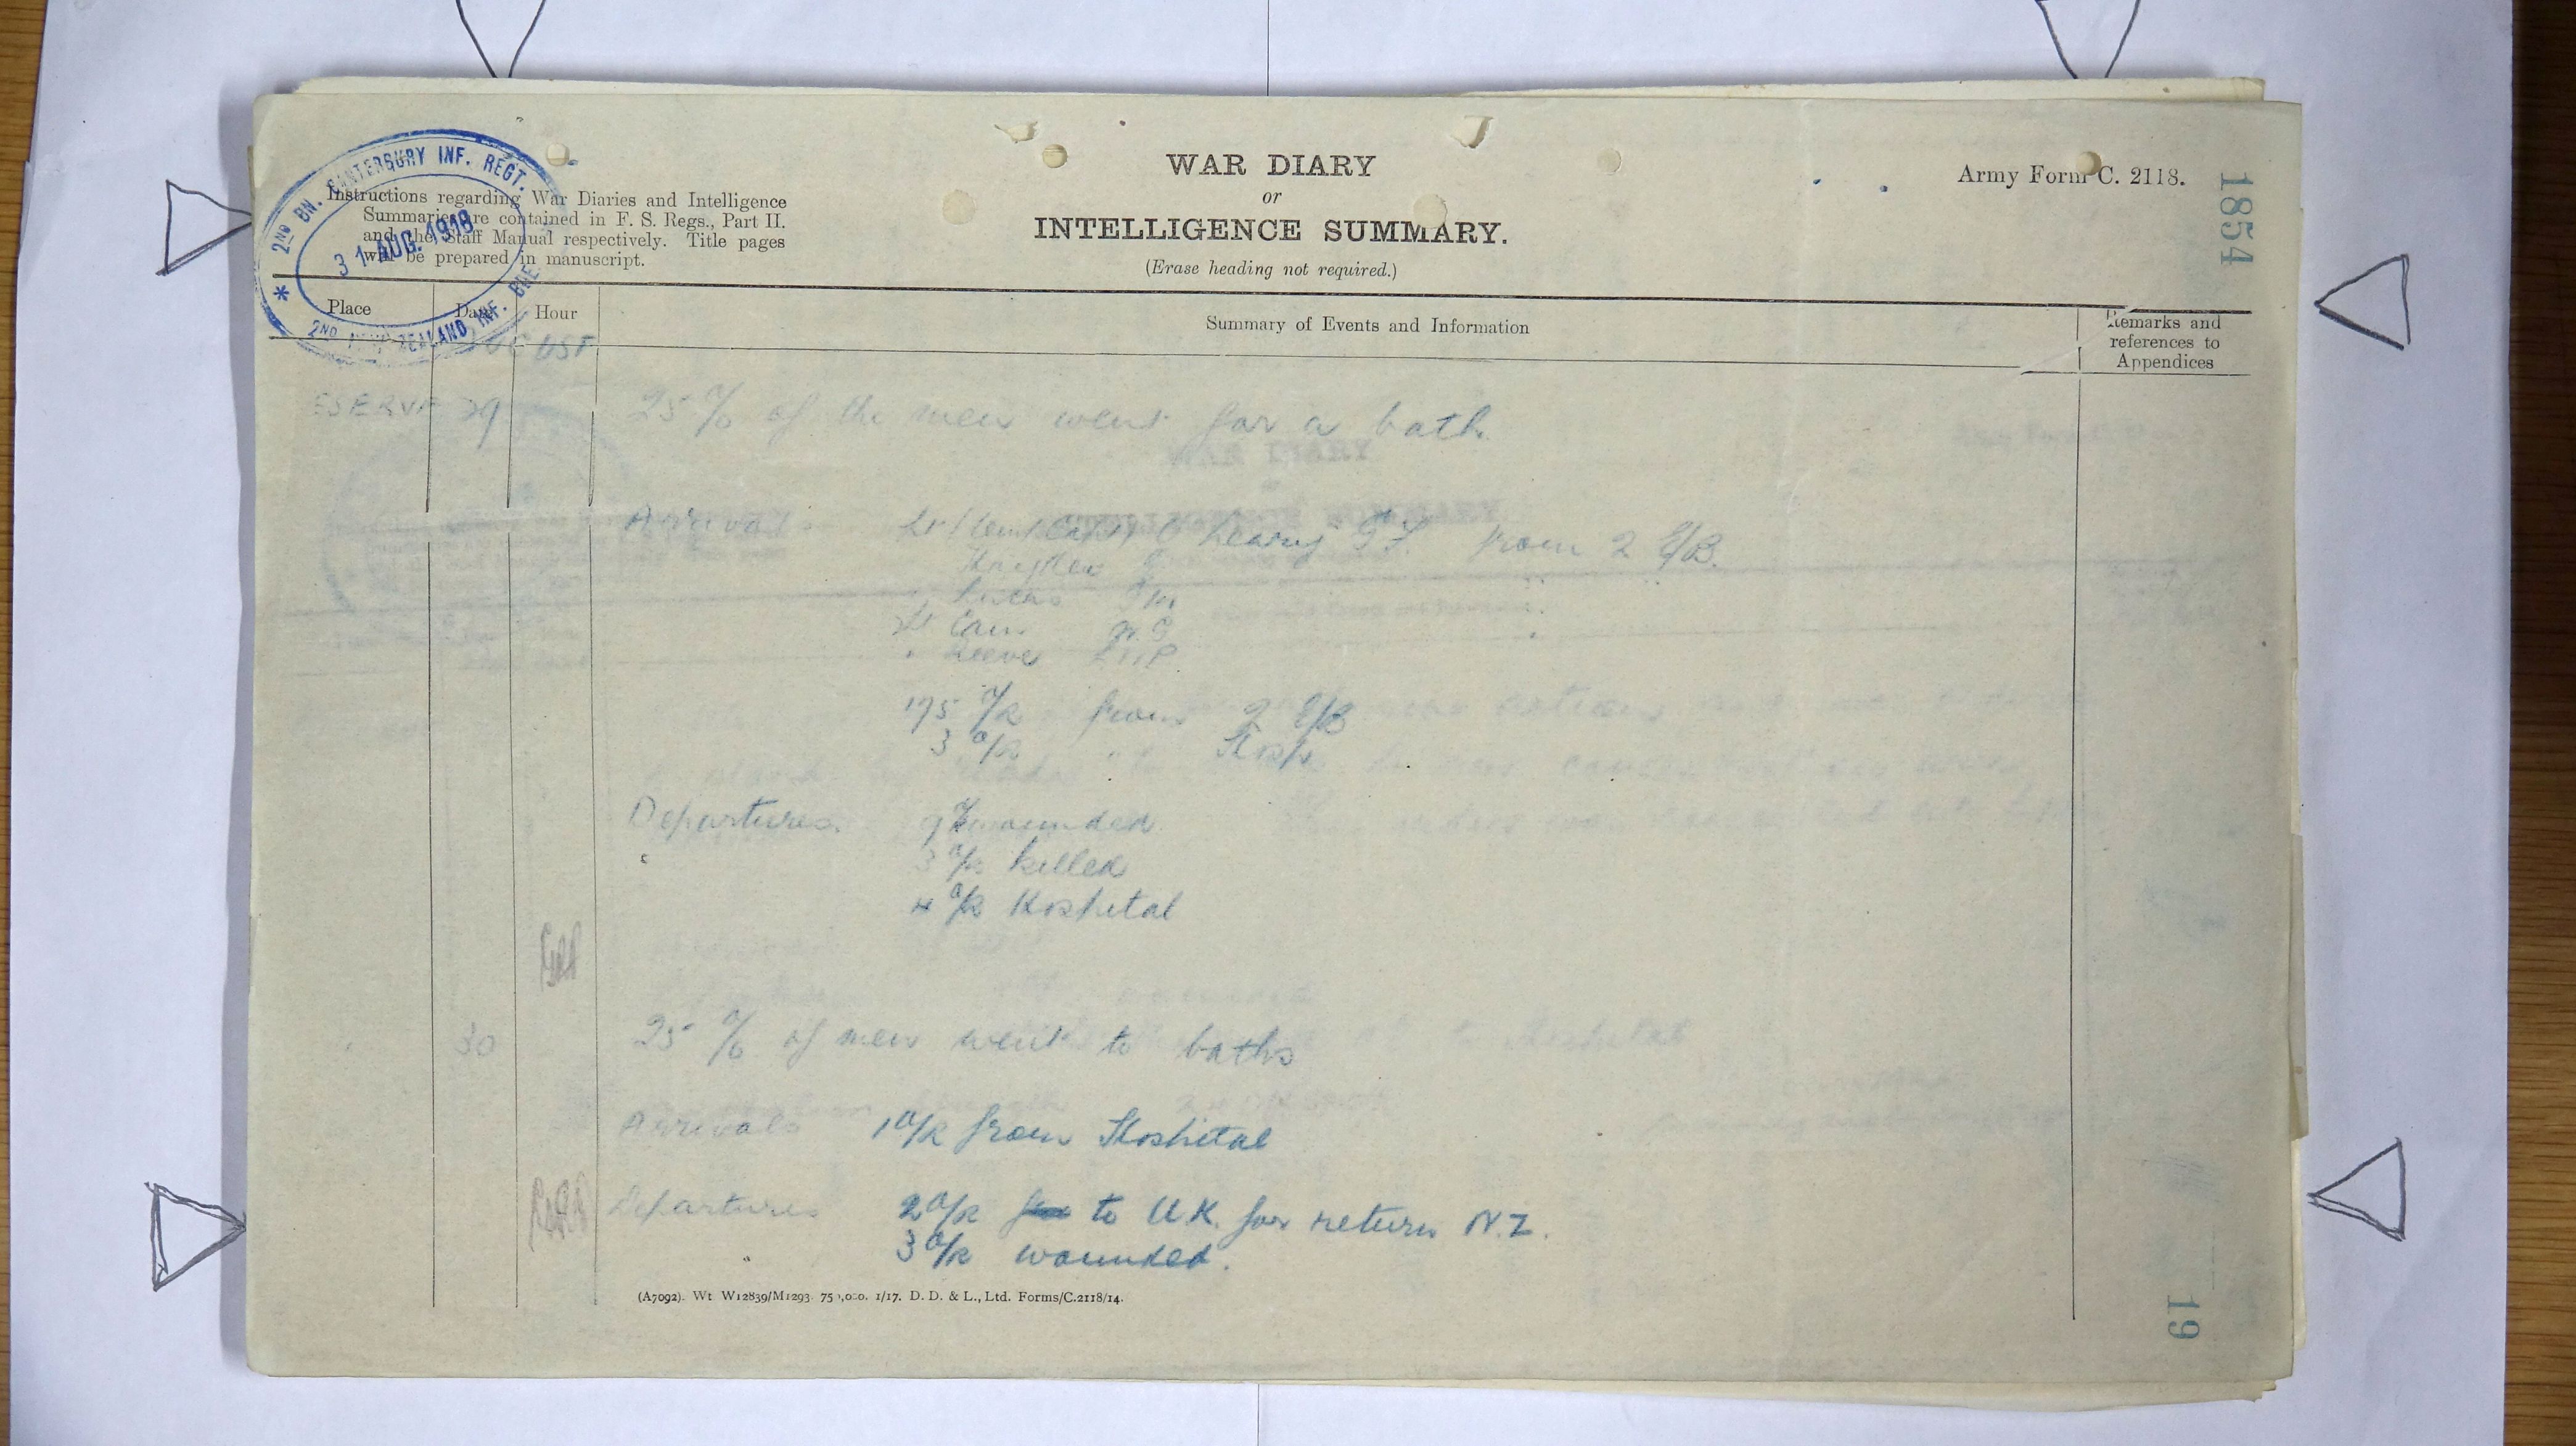 2ND BN. CANTERBURY INF. REGT.
31 AUG. 1918
2ND NEW ZEALAND INF. BDE
Instructions regarding War Diaries and Intelligence
Summaries are contained in F. S. Regs., Part II.
and the Staff Manual respectively. Title pages
will be prepared in manuscript.
WAR DIARY
or
INTELLIGENCE SUMMARY.
(Erase heading not required.)
Army Form C. 2118.
1854
Place
Date
Hour
Summary of Events and Information
Remarks and
references to
Appendices
AUGUST
RESERVE 29 25% of the men went for a bath.
Arrivals Lt (temp Capt) from 2 E/B.
Lt
175 O/R from 2 E/B
3 O/R " Hosp
Departures. 9 O/R wounded
3 O/R killed
4 O/R Hospital
30 25% of men went to baths
Arrivals 1 O/R from Hospital
Departures 2 O/R to U.K. for return N.Z.
3 O/R wounded.
(A7092). Wt W12839/M1293. 750,000. 1/17. D. D. & L., Ltd. Forms/C.2118/14.
19